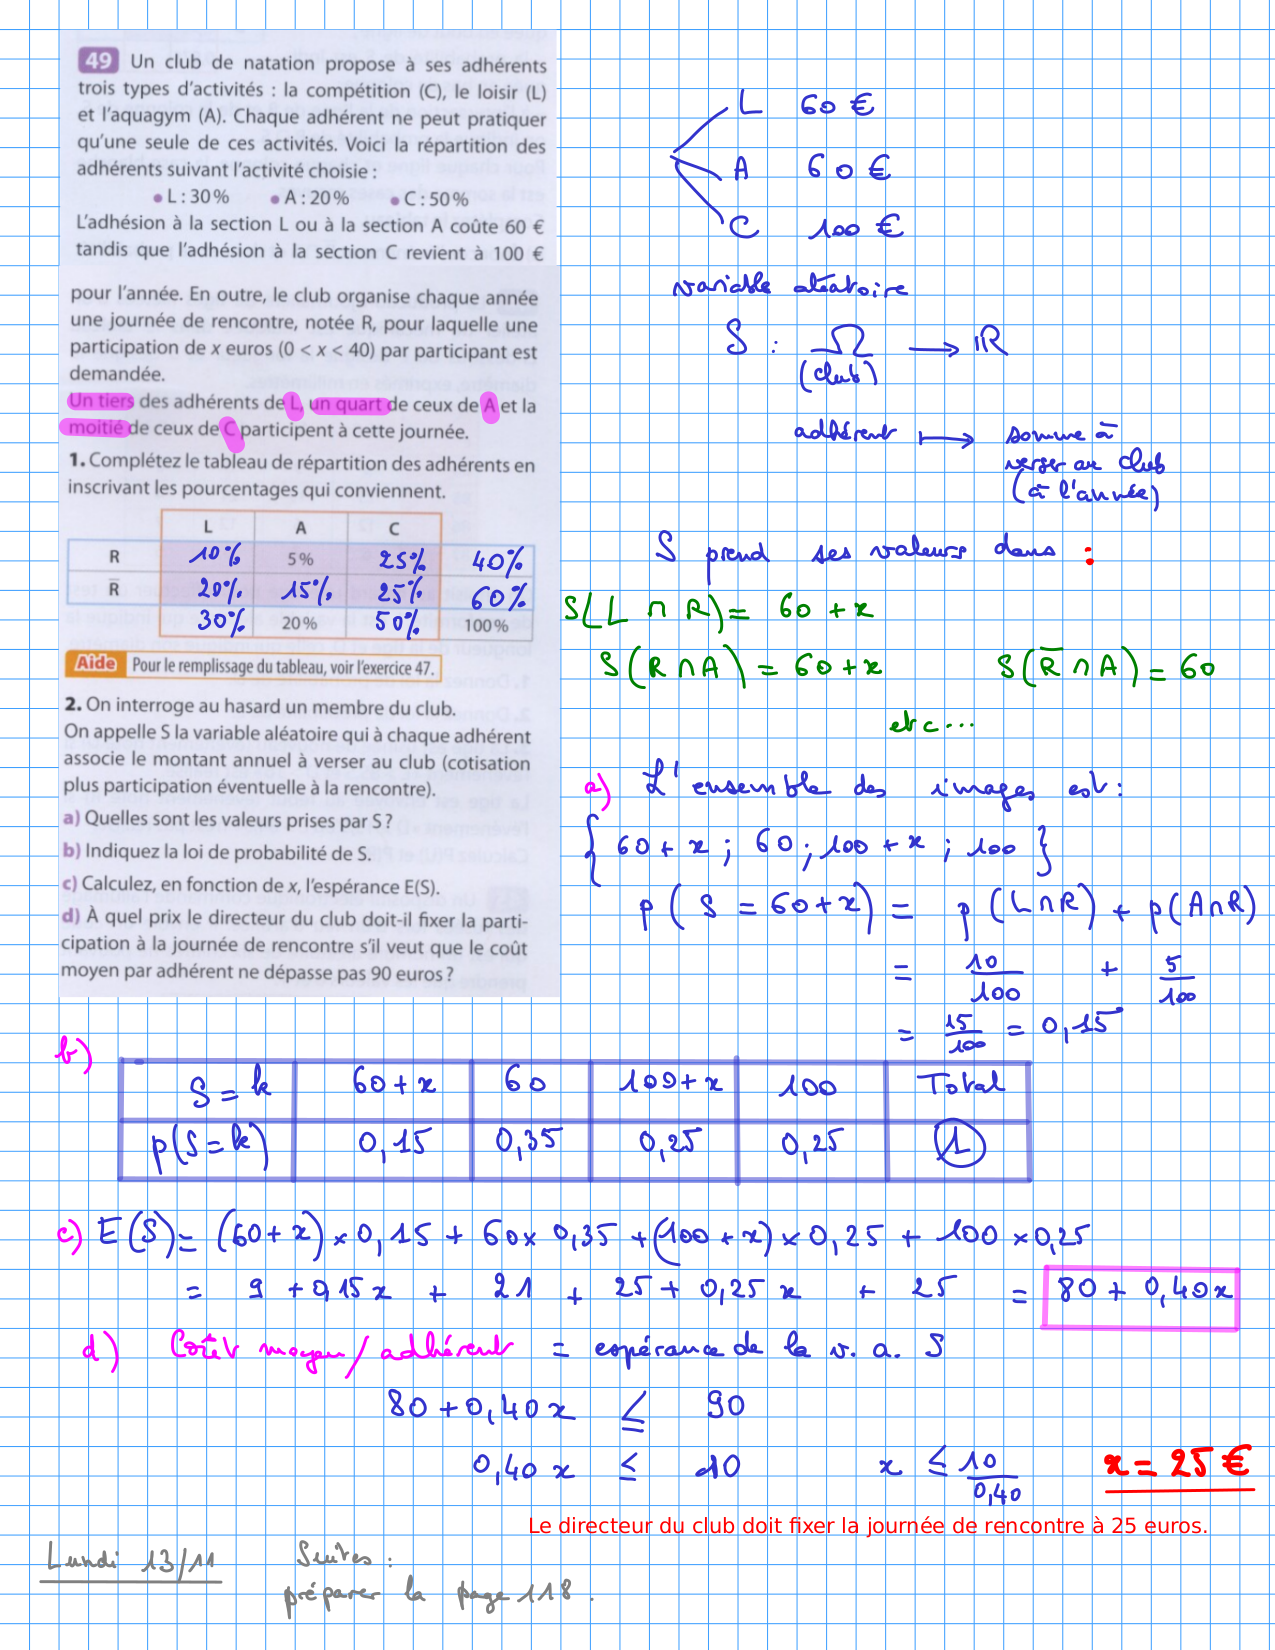 49 Un club de natation propose à ses adhérents
trois types d'activités : la compétition (C), le loisir (L)
et l'aquagym (A). Chaque adhérent ne peut pratiquer
qu'une seule de ces activités. Voici la répartition des
adhérents suivant l'activité choisie :
• L : 30 % • A : 20 % • C : 50 %
L'adhésion à la section L ou à la section A coûte 60 €
tandis que l'adhésion à la section C revient à 100 €
pour l'année. En outre, le club organise chaque année
une journée de rencontre, notée R, pour laquelle une
participation de x euros (0 < x < 40) par participant est
demandée.
Un tiers des adhérents de L, un quart de ceux de A et la
moitié de ceux de C participent à cette journée.
1. Complétez le tableau de répartition des adhérents en
inscrivant les pourcentages qui conviennent.
L A C
R 10% 5 % 25% 40%
R̅ 20% 15% 25% 60%
30% 20 % 50% 100 %
Aide Pour le remplissage du tableau, voir l'exercice 47.
2. On interroge au hasard un membre du club.
On appelle S la variable aléatoire qui à chaque adhérent
associe le montant annuel à verser au club (cotisation
plus participation éventuelle à la rencontre).
a) Quelles sont les valeurs prises par S ?
b) Indiquez la loi de probabilité de S.
c) Calculez, en fonction de x, l'espérance E(S).
d) À quel prix le directeur du club doit-il fixer la parti-
cipation à la journée de rencontre s'il veut que le coût
moyen par adhérent ne dépasse pas 90 euros ?
L 60 €
A 60 €
C 100 €
variable aléatoire
S : Ω ⟶ ℝ
(club)
adhérent ⟼ somme à
verser au club
(à l'année)
S prend ses valeurs dans :
S(L ∩ R) = 60 + x
S(R ∩ A) = 60 + x S(R̅ ∩ A) = 60
etc...
a) L'ensemble des images est :
{ 60 + x ; 60 ; 100 + x ; 100 }
p(S = 60 + x) = p(L∩R) + p(A∩R)
= 10/100 + 5/100
= 15/100 = 0,15
b)
S = k 60 + x 60 100 + x 100 Total
p(S = k) 0,15 0,35 0,25 0,25 1
c) E(S) = (60 + x) × 0,15 + 60 × 0,35 + (100 + x) × 0,25 + 100 × 0,25
= 9 + 0,15 x + 21 + 25 + 0,25 x + 25 = 80 + 0,40 x
d) Coût moyen / adhérent = espérance de la v. a. S
80 + 0,40 x ≤ 90
0,40 x ≤ 10 x ≤ 10/0,40 x = 25 €
Le directeur du club doit fixer la journée de rencontre à 25 euros.
Lundi 13/11 Suites :
préparer la page 118.